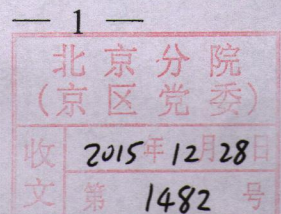 — 1 —
北京分院
(京区党委)
收 2015年12月28日
文 第 1482 号